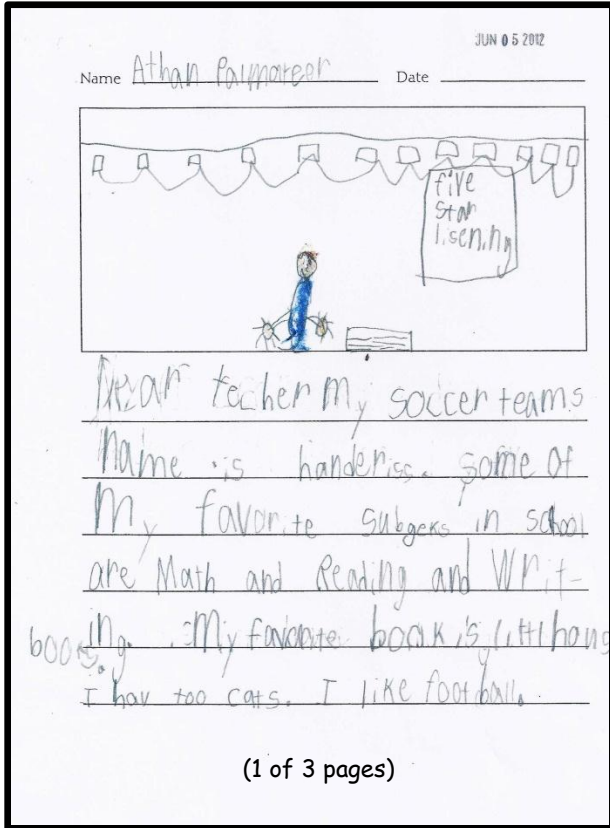 JUN 05 2012
Name Athan Palmateer Date
five
star
lisening
Dear techer My soccer teams
name is handeriss. some of
My favorite subgeks in school
are Math and Reading and Writ-
ing. My favorite book is
books.
I hav too cats. I like football.
(1 of 3 pages)